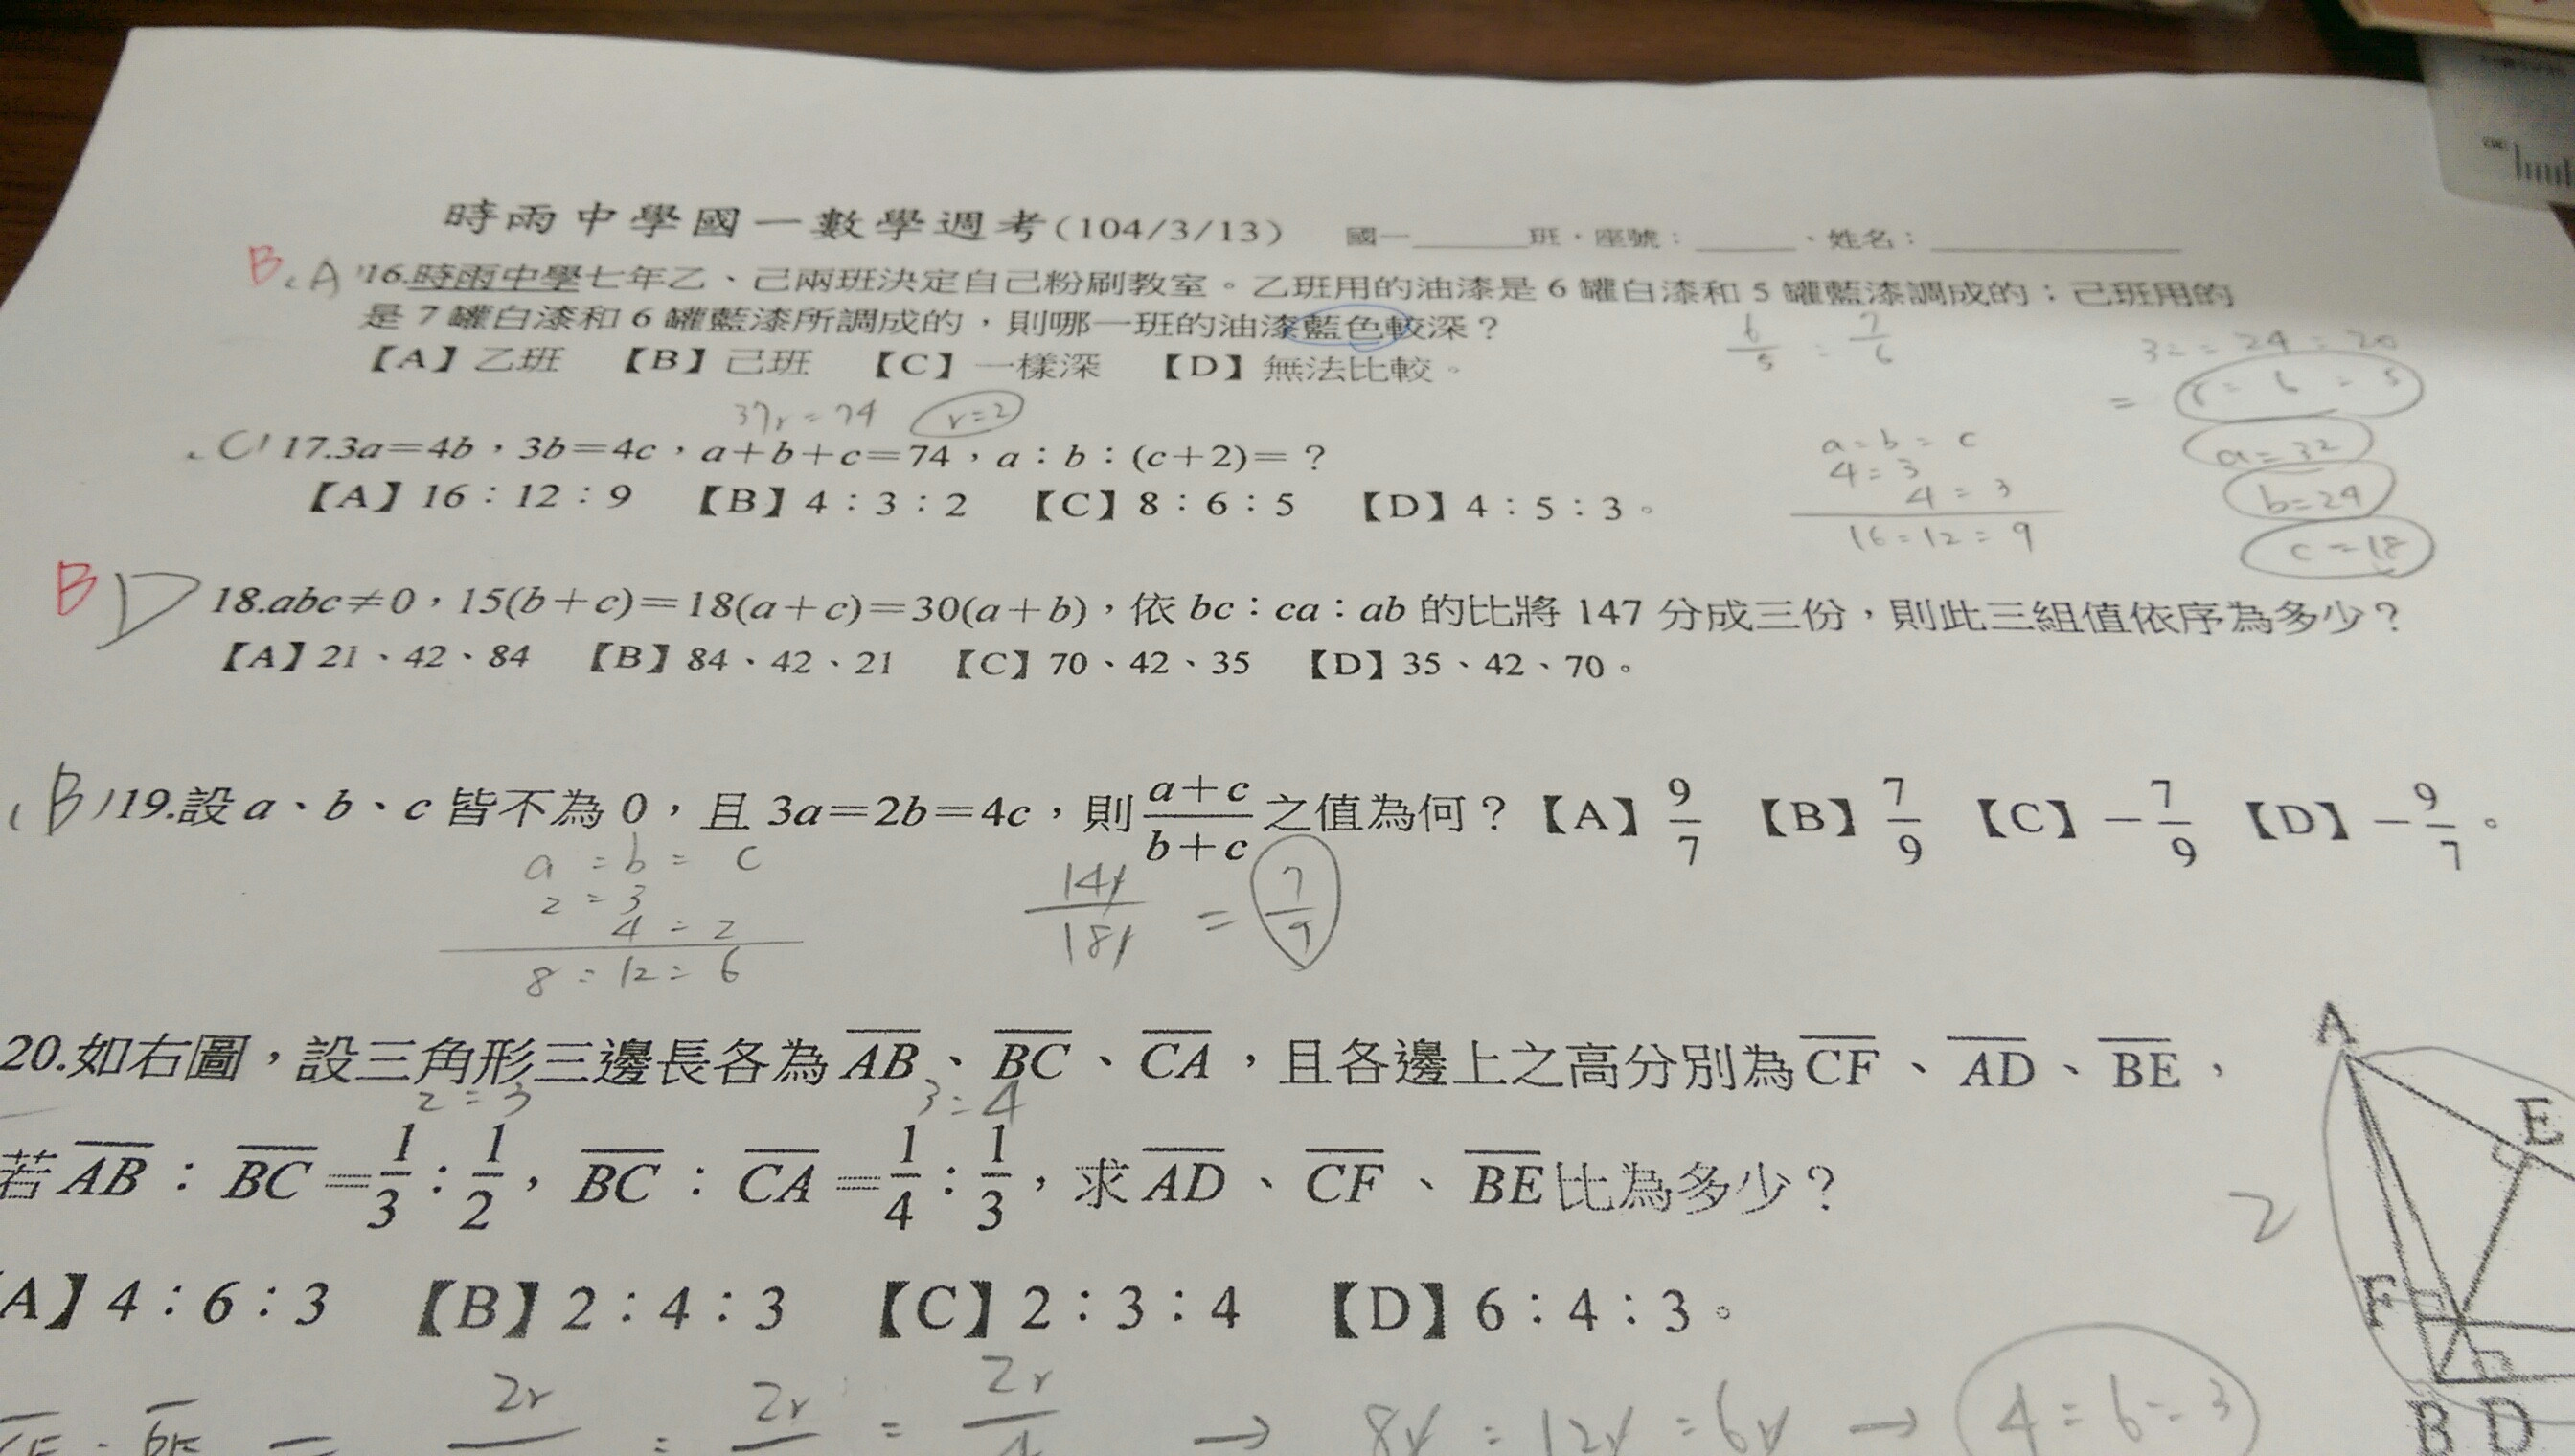 時雨中學國一數學週考(104/3/13) 國一______班，座號：_____、姓名：____________
B A 16.時雨中學七年乙、己兩班決定自己粉刷教室。乙班用的油漆是 6 罐白漆和 5 罐藍漆調成的；己班用的
是 7 罐白漆和 6 罐藍漆所調成的，則哪一班的油漆藍色較深？
6/5 : 7/6
32 : 24 : 20
【A】乙班 【B】己班 【C】一樣深 【D】無法比較。
= 8 : 6 : 5
37r=74 r=2
C 17.3a=4b，3b=4c，a+b+c=74，a：b：(c+2)=？
a : b : c
4 : 3
4 : 3
16 : 12 : 9
a=32
b=24
c=18
【A】16：12：9 【B】4：3：2 【C】8：6：5 【D】4：5：3。
B D 18.abc≠0，15(b+c)=18(a+c)=30(a+b)，依 bc：ca：ab 的比將 147 分成三份，則此三組值依序為多少？
【A】21、42、84 【B】84、42、21 【C】70、42、35 【D】35、42、70。
(B)19.設 a、b、c 皆不為 0，且 3a=2b=4c，則 (a+c)/(b+c) 之值為何？【A】9/7 【B】7/9 【C】−7/9 【D】−9/7。
a : b : c
2 : 3
4 : 2
8 : 12 : 6
14r/18r = 7/9
20.如右圖，設三角形三邊長各為 AB、BC、CA，且各邊上之高分別為 CF、AD、BE，
2 : 3 3 : 4
若 AB：BC=1/3：1/2，BC：CA=1/4：1/3，求 AD、CF、BE 比為多少？
A】4：6：3 【B】2：4：3 【C】2：3：4 【D】6：4：3。
A
E
2
F
B D
2r : 2r : 2r/4 → 8r : 12r : 6r → 4 : 6 : 3